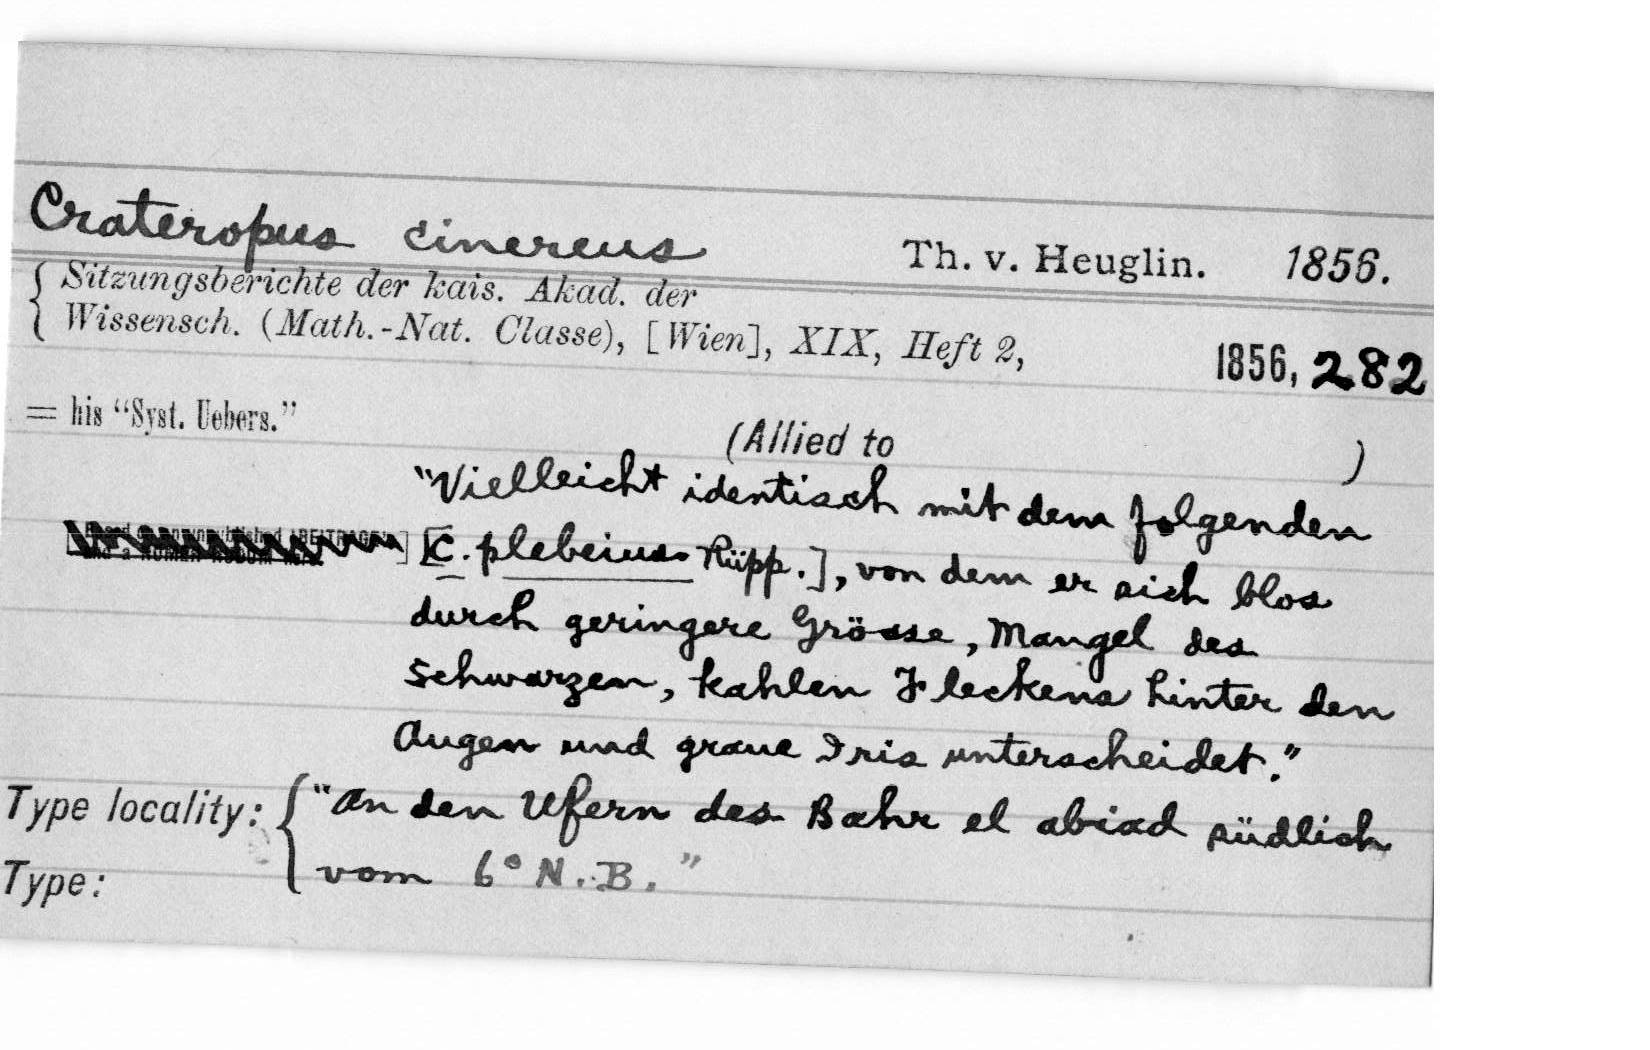 Crateropus cinereus Th. v. Heuglin. 1856.
Sitzungsberichte der kais. Akad. der
Wissensch. (Math.-Nat. Classe), [Wien], XIX, Heft 2, 1856, 282
= his “Syst. Uebers.”
(Allied to )
“Vielleicht identisch mit dem folgenden
[C. plebeius Rüpp.], von dem er sich blos
durch geringere Grösse, Mangel des
schwarzen, kahlen Fleckens hinter den
Augen und graue Iris unterscheidet.”
Type locality: “An den Ufern des Bahr el abiad südlich
vom 6° N. B.”
Type: